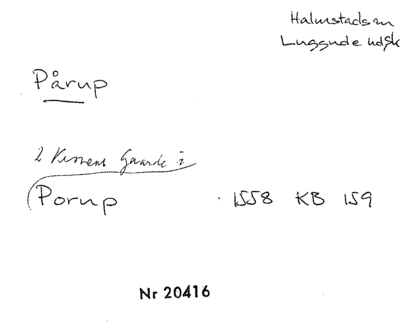 Halmstads sn
Luggude hd Sk
Pårup
2 Kronens Gaarde i
Porup · 1558 KB 159
Nr 20416